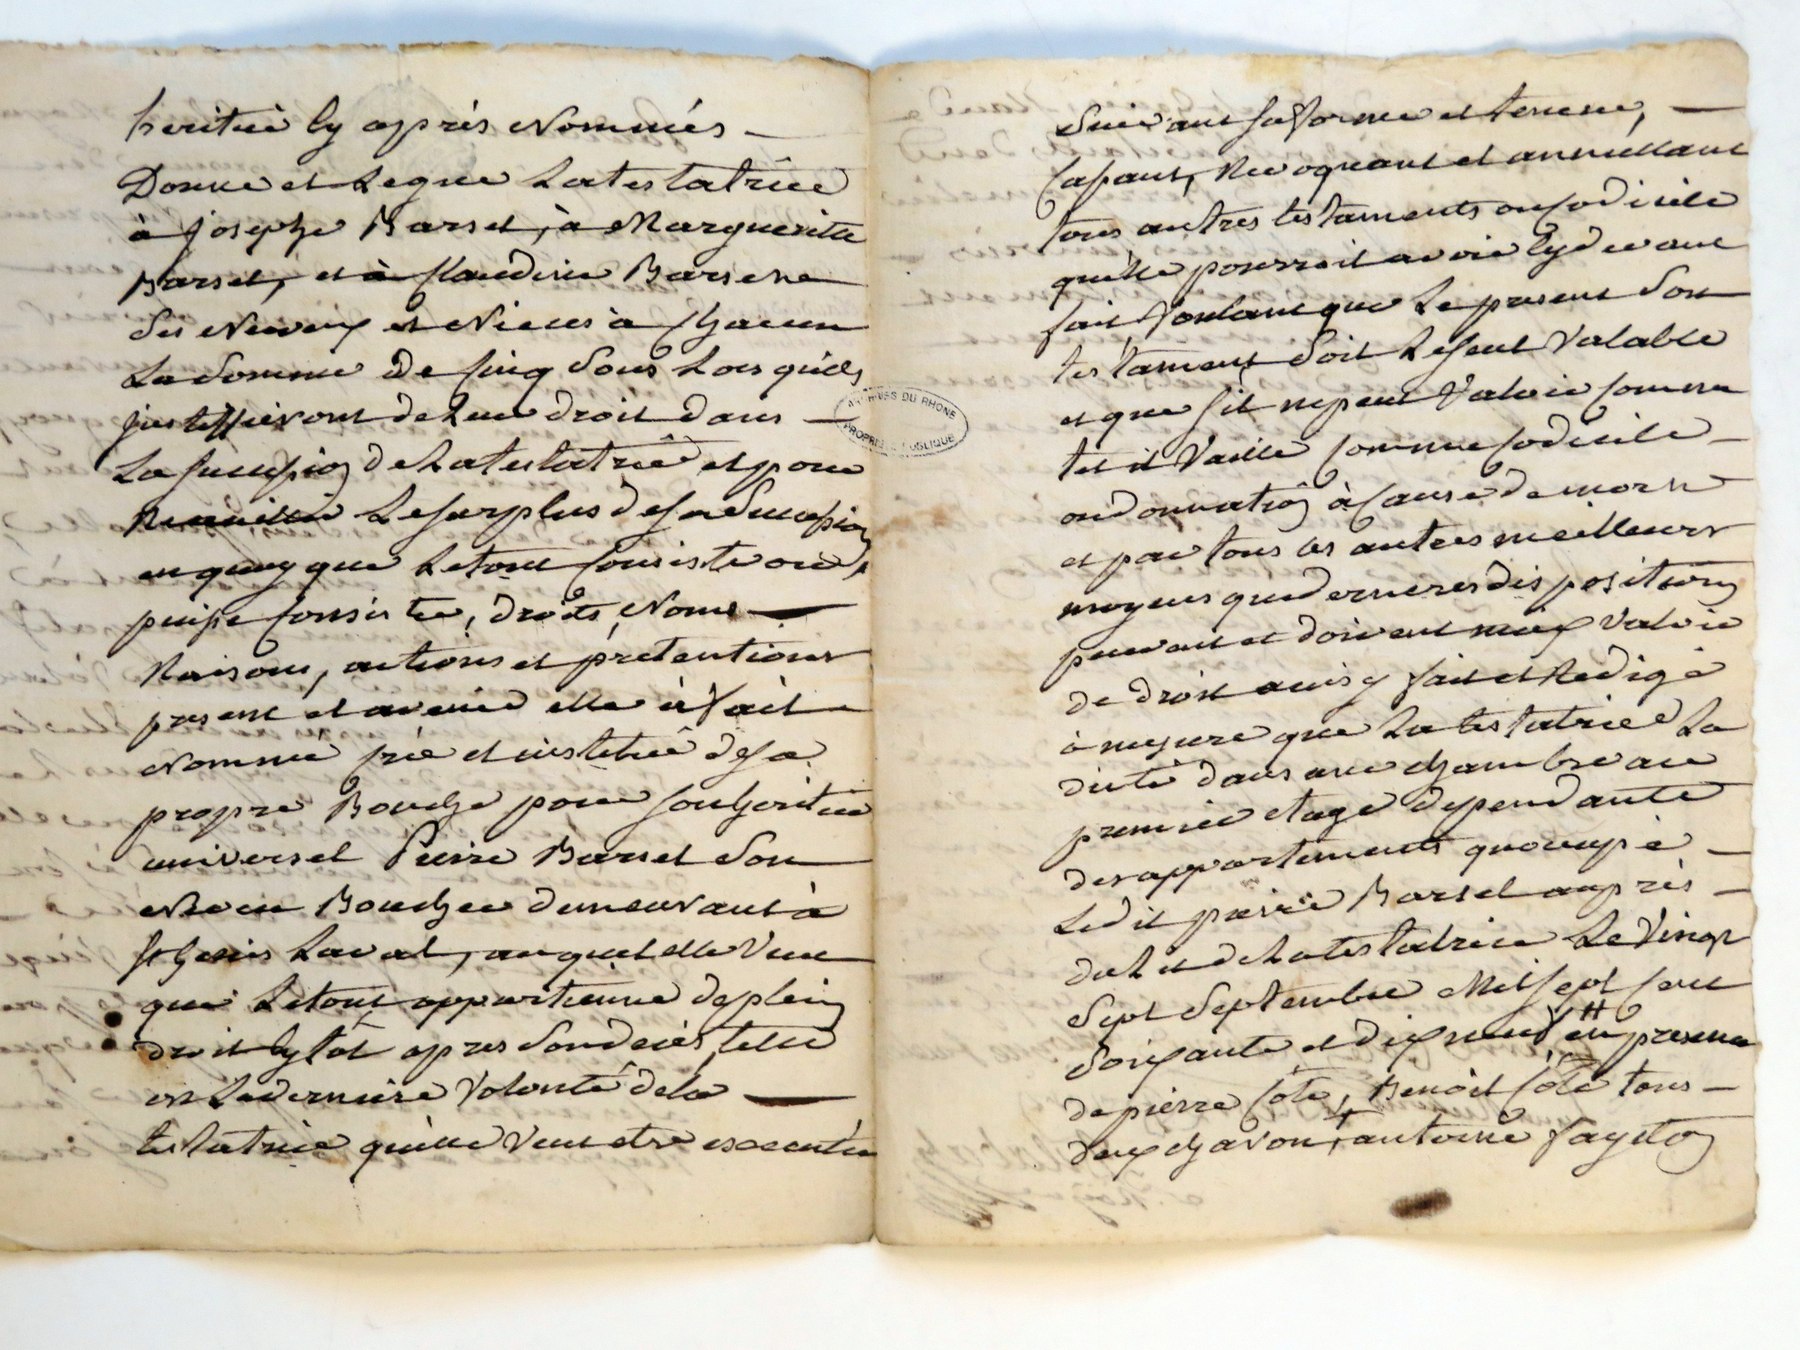 heritié cy après Nommés –
Donne et Legue La testatrice
à joseph Barset, à Marguerite
Barset, et à Claudine Barset
ses Neveux et Nieces à Chacun
La somme de Cinq sous Lors quils
justiffieront de Leur droit dans –
La succession de La testatrice et pour
Le surplus de sa succession
en quoy que Le tout Consiste ou
puisse Consister, droits, Noms –
Raisons, actions et prétentions
present et avenir elle à fait
Nommé crée et institué de sa
propre Bouche pour son heritier
universel Pierre Barset son
Neveu Boucher demeurant à
St Genis Laval, auquel elle Veut
que Le tout appartienne de plein
droit sytôt apres son decès, telle
est La derniere Volonté de la –
testatrice qu'elle Veut etre executée
suivant sa forme et teneur, –
Cassant, Revoquant et annullant
tous autres testaments ou Codicile
qu'elle pourroit avoir cy devant
fait Voulant que Le present son
testament soit Le seul Valable
et que s'il ne peut Valoir Comme
tel il Vaille Comme Codicile –
ou donnation à Cause de mort
et par tous les autres meilleurs
moyens que dernieres dispositions
peuvent et doivent mieux Valoir
de droit ainsy fait et Redigé
à mesure que La testatrice La
dicté dans une chambre au
premier etage dependante
des appartements qu'occupe –
Ledit pierre Barset auprès –
du Lit de La testatrice Le Vingt
Sept Septembre Mil sept cent
Soixante et dix neuf en presence
de pierre Côte, Benoit Côte tous –
deux antoine
ARCHIVES DU RHONE
PROPRIÉTÉ PUBLIQUE